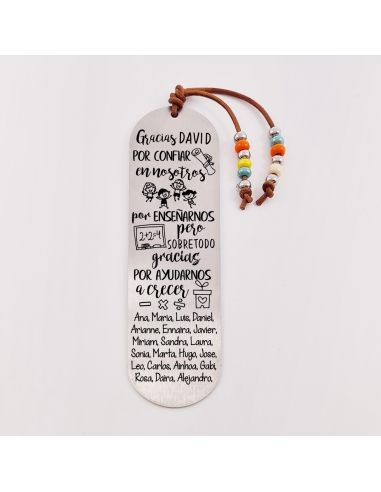 Gracias DAVID
POR CONFIAR
en nosotros
por ENSEÑARNOS
2+2=4 pero
SOBRETODO
gracias
POR AYUDARNOS
a crecer
Ana, Maria, Luis, Daniel,
Arianne, Ennaira, Javier,
Miriam, Sandra, Laura,
Sonia, Marta, Hugo, Jose,
Leo, Carlos, Ainhoa, Gabi,
Rosa, Daira, Alejandra,